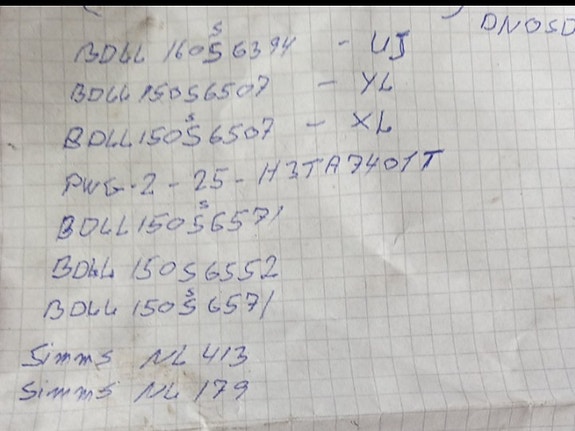 DNOSD
BDLL 160S6394 - UJ
BDLL 150S6507 - YL
BDLL 150S6507 - XL
PWG-2-25-H3TA7401T
BDLL 150S6571
BDLL 150S6552
BDLL 150S6571
Simms NL 413
Simms NL 179